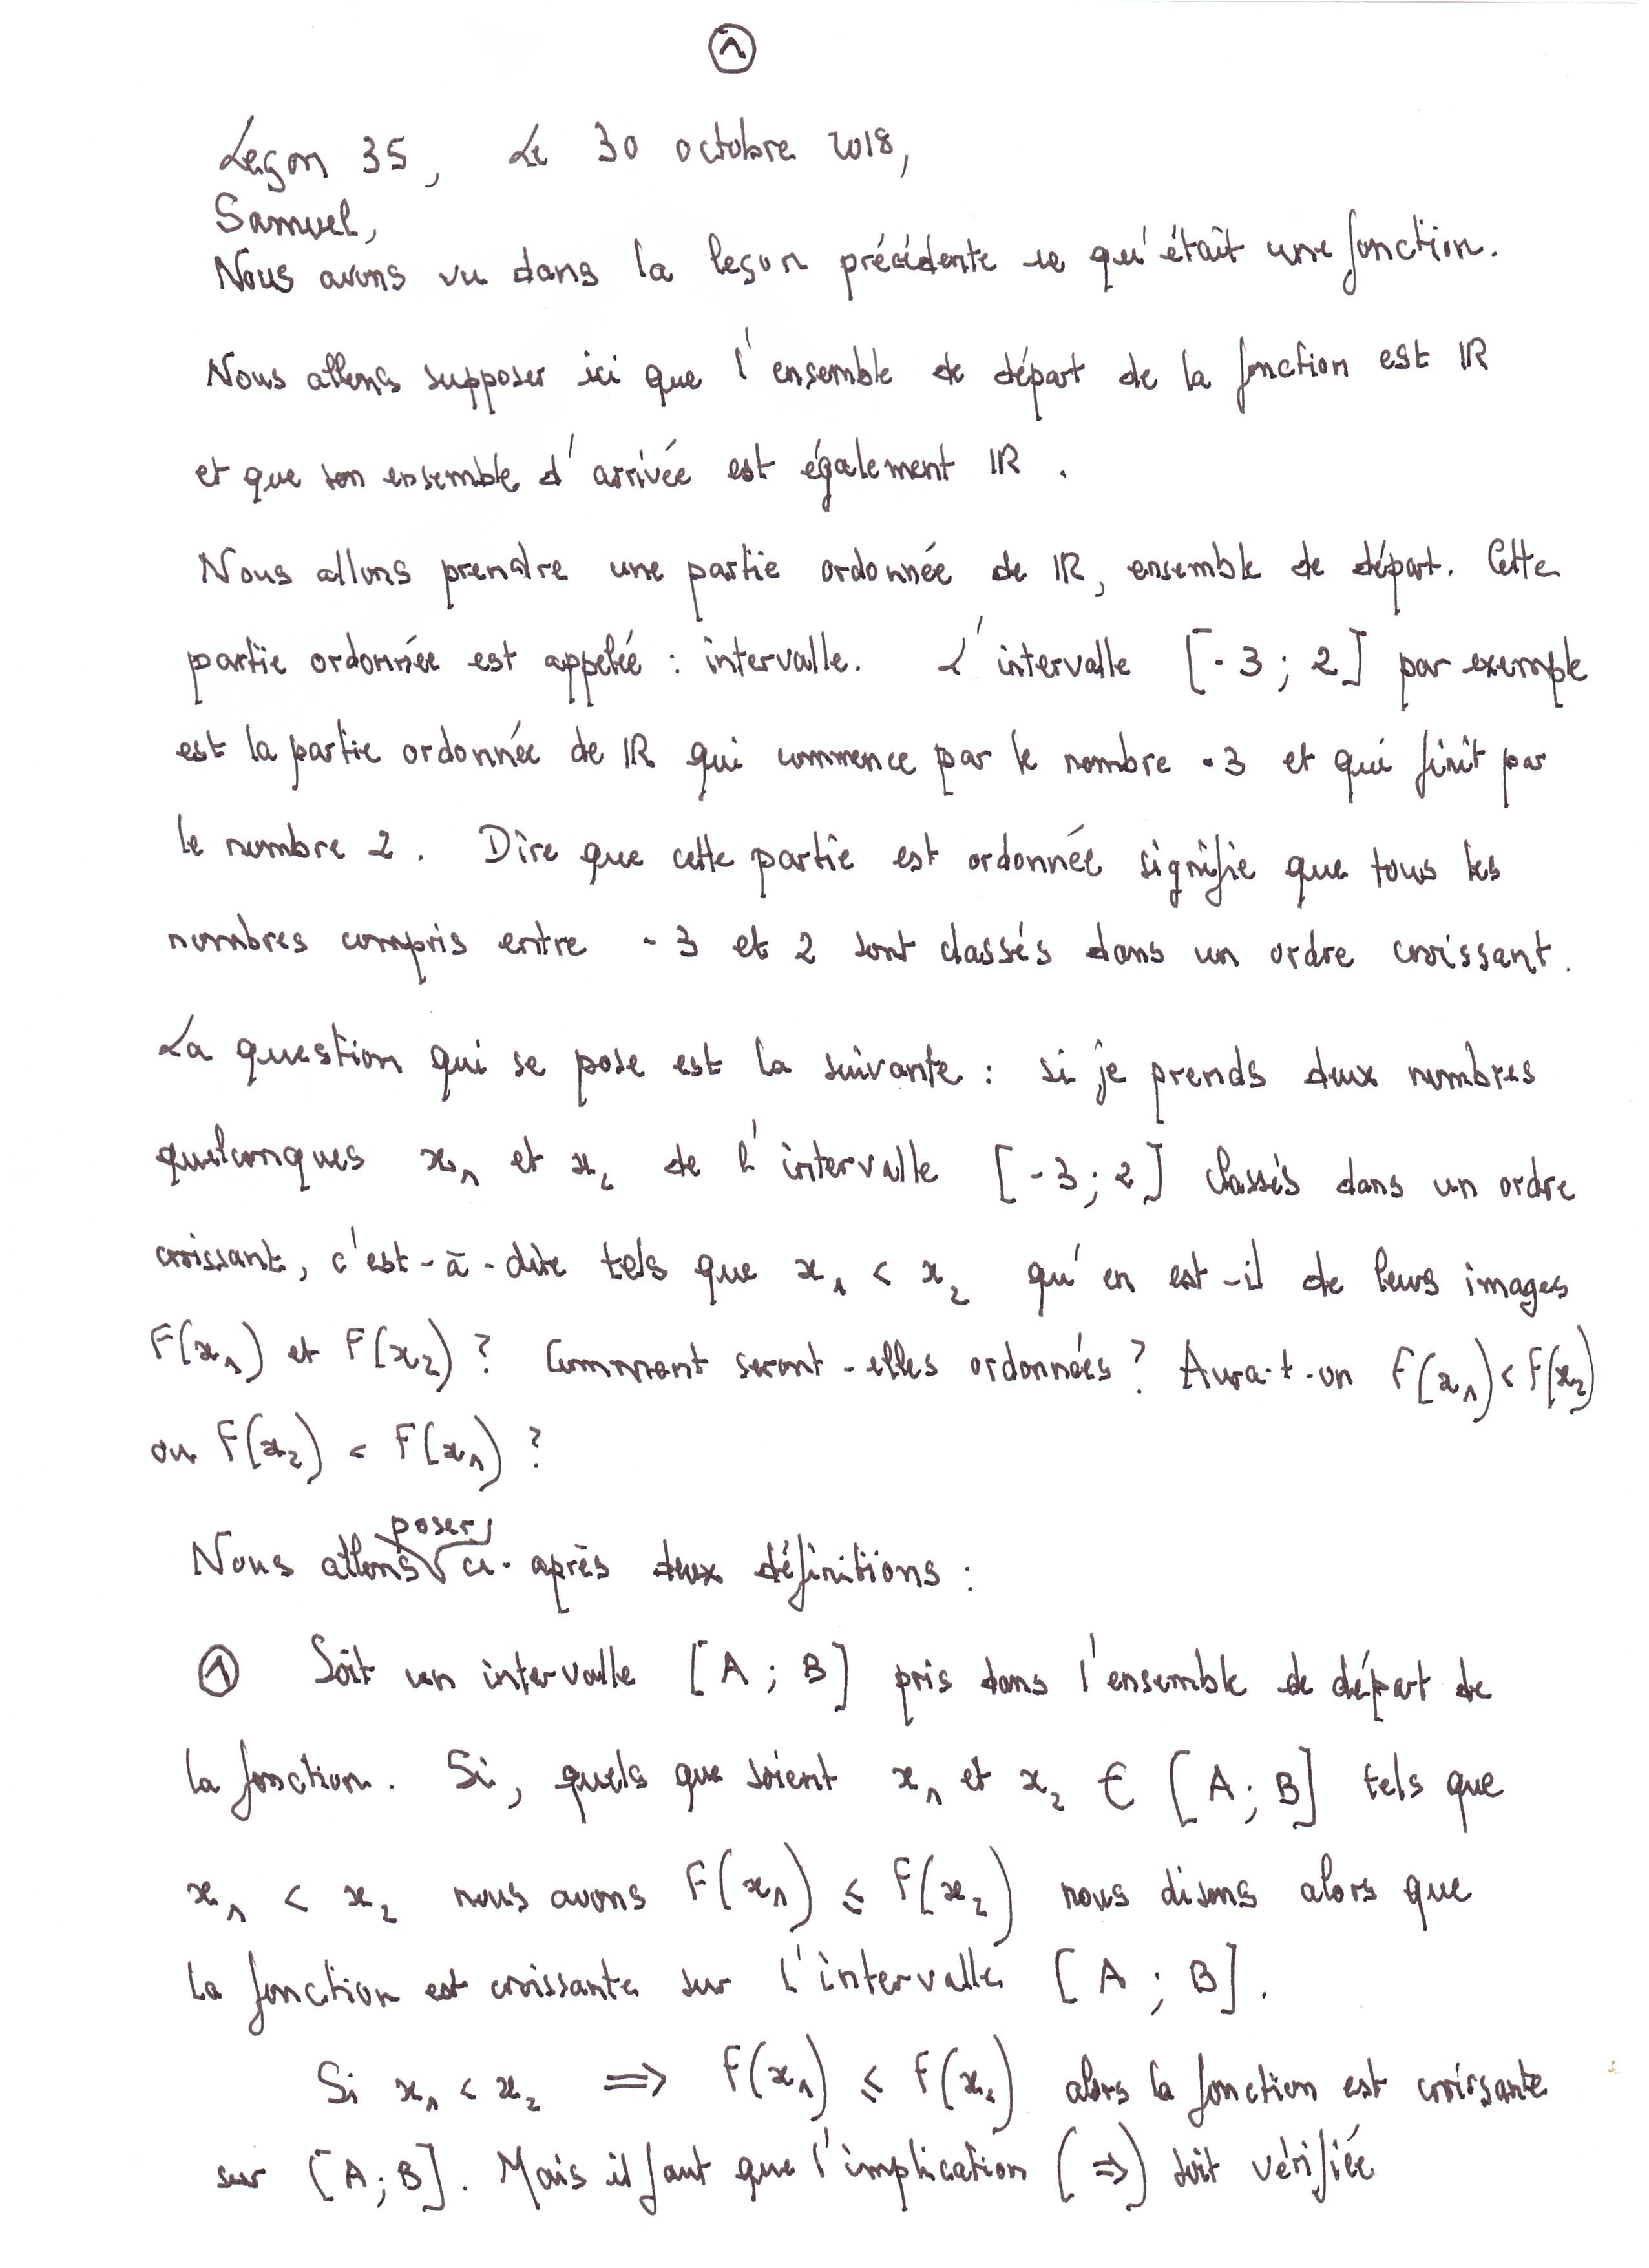 ①
Leçon 35, Le 30 octobre 2018,
Samuel,
Nous avons vu dans la leçon précédente ce qu'était une fonction.
Nous allons supposer ici que l'ensemble de départ de la fonction est ℝ
et que son ensemble d'arrivée est également ℝ.
Nous allons prendre une partie ordonnée de ℝ, ensemble de départ. Cette
partie ordonnée est appelée : intervalle. L'intervalle [-3 ; 2] par exemple
est la partie ordonnée de ℝ qui commence par le nombre -3 et qui finit par
le nombre 2. Dire que cette partie est ordonnée signifie que tous les
nombres compris entre -3 et 2 sont classés dans un ordre croissant.
La question qui se pose est la suivante : si je prends deux nombres
quelconques x₁ et x₂ de l'intervalle [-3 ; 2] classés dans un ordre
croissant, c'est-à-dire tels que x₁ < x₂ qu'en est-il de leurs images
F(x₁) et F(x₂) ? Comment seront-elles ordonnées ? Aura-t-on F(x₁) < F(x₂)
ou F(x₂) < F(x₁) ?
Nous allons poser ci-après deux définitions :
① Soit un intervalle [A ; B] pris dans l'ensemble de départ de
la fonction. Si, quels que soient x₁ et x₂ ∈ [A ; B] tels que
x₁ < x₂ nous avons F(x₁) ≤ F(x₂) nous disons alors que
la fonction est croissante sur l'intervalle [A ; B].
Si x₁ < x₂ ⟹ F(x₁) ≤ F(x₂) alors la fonction est croissante
sur [A ; B]. Mais il faut que l'implication (⇒) soit vérifiée